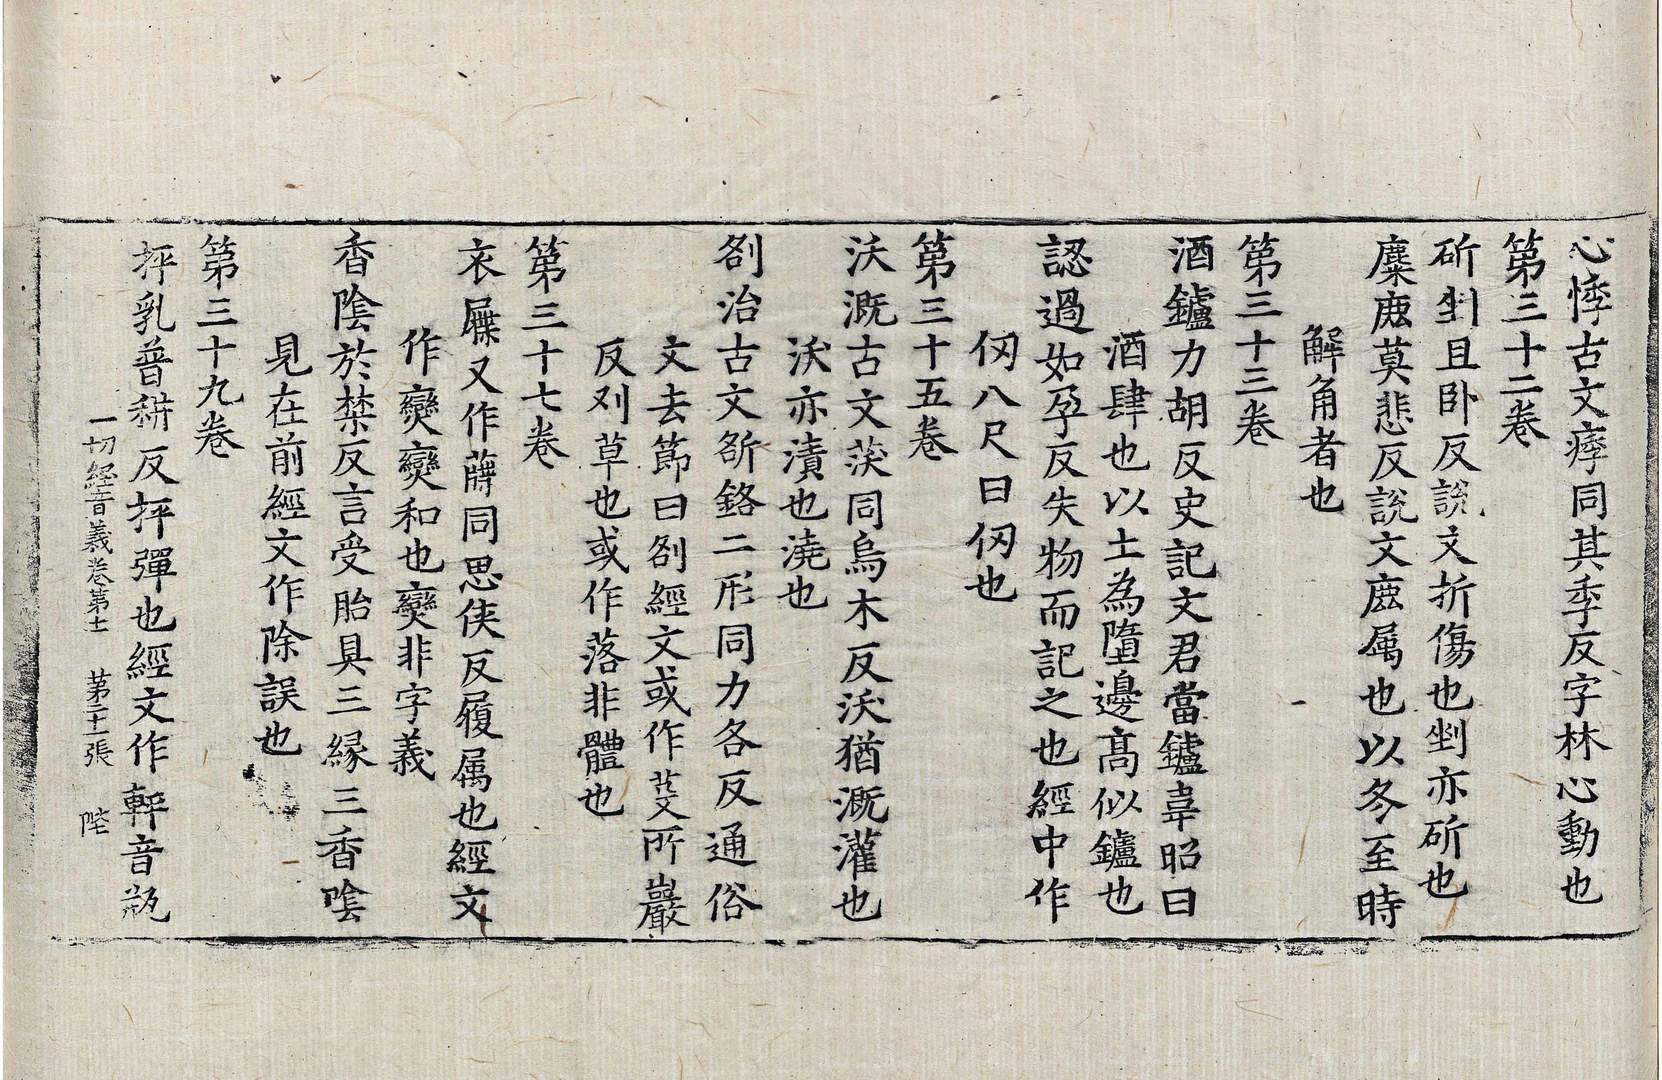 心悸古文痵同其季反字林心動也
第三十二卷
斫剉且卧反說文折傷也剉亦斫也
麋䴢莫悲反說文䴢属也以冬至時
解角者也
第三十三卷
酒鑪力胡反史記文君當鑪韋昭曰
酒肆也以土為墮邊高似鑪也
認過如孕反失物而記之也經中作
仞八尺曰仞也
第三十五卷
沃溉古文䒬同烏木反沃猶溉灌也
沃亦漬也澆也
剢治古文㓣鉻二形同力各反通俗
文去節曰剢經文或作芟所巖
反刈草也或作落非體也
第三十七卷
衣屧又作㒎同思俠反履属也經文
作㸉㸉和也㸉非字義
香陰於禁反言受胎具三縁三香陰
見在前經文作除誤也
第三十九卷
抨乳普耕反抨彈也經文作軯音瓶
一切經音義卷第十一 第二十一張 陛